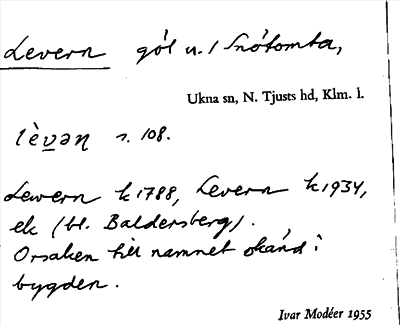 Levern göl u. / Snötomta,
Ukna sn, N. Tjusts hd, Klm. l.
lèvəɳ s. 108.
Lewern k 1788, Levern k 1934,
ek (bl. Baldersberg).
Orsaken till namnet okänd i
bygden.
Ivar Modéer 1955